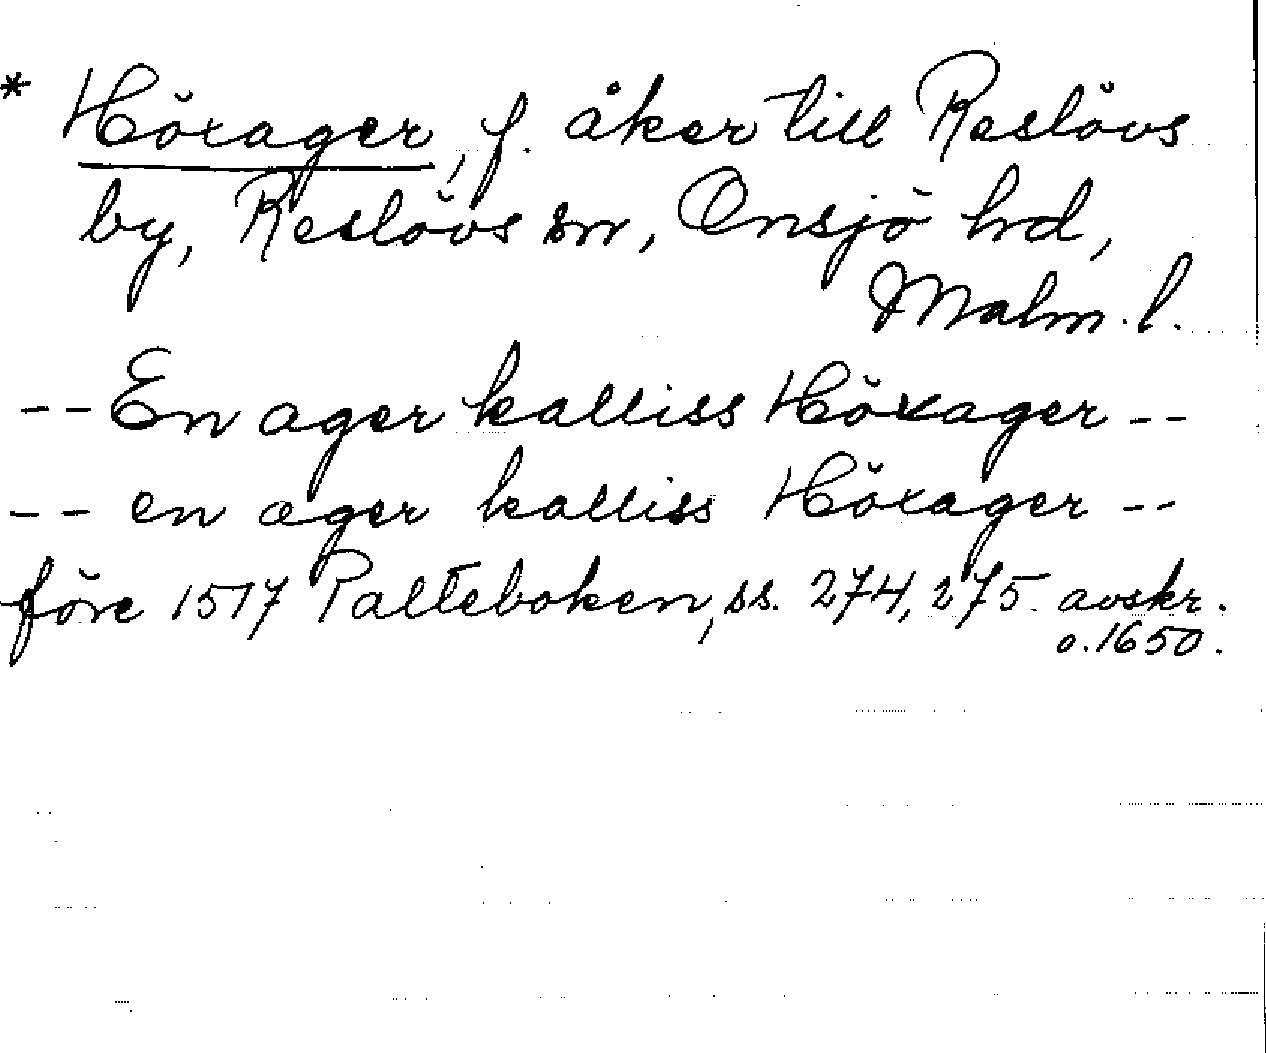 * Höxager, f. åker till Reslövs
by, Reslövs sn, Onsjö hd,
Malm. l.
-- En ager kalliss Höxager --
-- en ager kalliss Höxager --
före 1517 Palteboken, ss. 274, 275. avskr.
o. 1650.